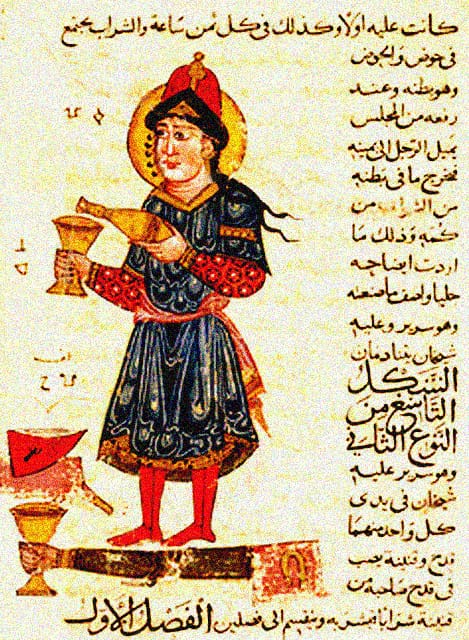 كانت عليه اولا وكذلك في كل ثمن ساعة والشراب يجتمع
في حوض والحوض
وهو بطنه وعند
رفعه من المجلس
يميل الرجل الى يمينه
فيخرج ما في بطنه
من الشراب من
كمه وذلك ما
اردت ايضاحه
جليا واصف ما صنعته
وهو سرير وعليه
شيخان يتنادمان
الشكل
التاسع من
النوع الثاني
وهو سرير عليه
شيخان في يدي
كل واحد منهما
قدح وقنينة يصب
في قدح صاحبه من
قنينته شرابا فيشربه وينقسم الى فصلين الفصل الاول